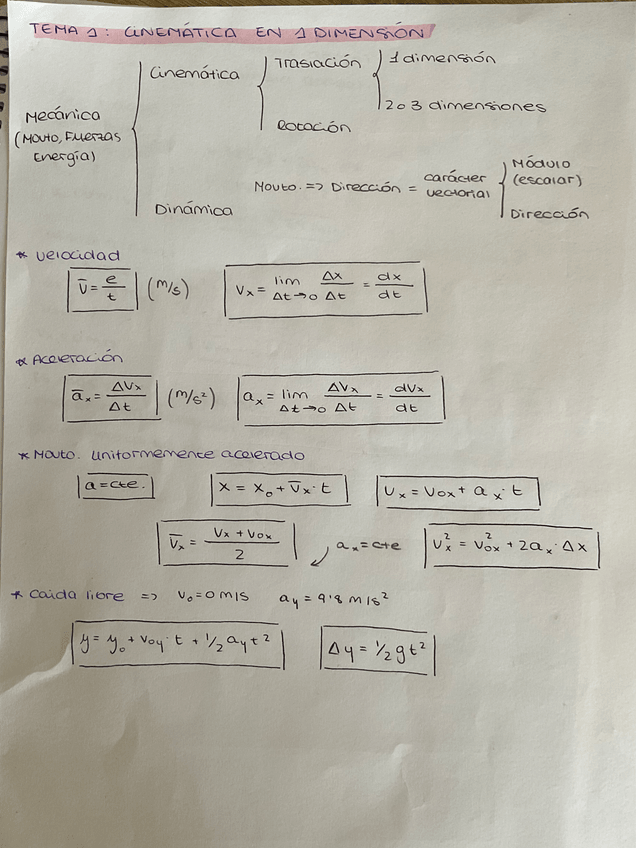 TEMA 1: CINEMÁTICA EN 1 DIMENSIÓN
Mecánica
(Movto, Fuerzas
Energía)
Cinemática
Traslación
1 dimensión
2 o 3 dimensiones
Rotación
Dinámica
Movto. => Dirección = carácter vectorial
Módulo
(escalar)
Dirección
* Velocidad
v̄ = e/t (m/s) Vx = lim Δt→0 Δx/Δt = dx/dt
* Aceleración
āx = ΔVx/Δt (m/s²) ax = lim Δt→0 ΔVx/Δt = dVx/dt
* Movto. Uniformemente acelerado
a = cte. x = x₀ + V̄x · t Vx = V₀x + ax · t
V̄x = (Vx + V₀x)/2 ax = cte Vx² = V₀x² + 2ax · Δx
* Caída libre => V₀ = 0 m/s ay = 9'8 m/s²
y = y₀ + V₀y · t + 1/2 ay t² Δy = 1/2 g t²